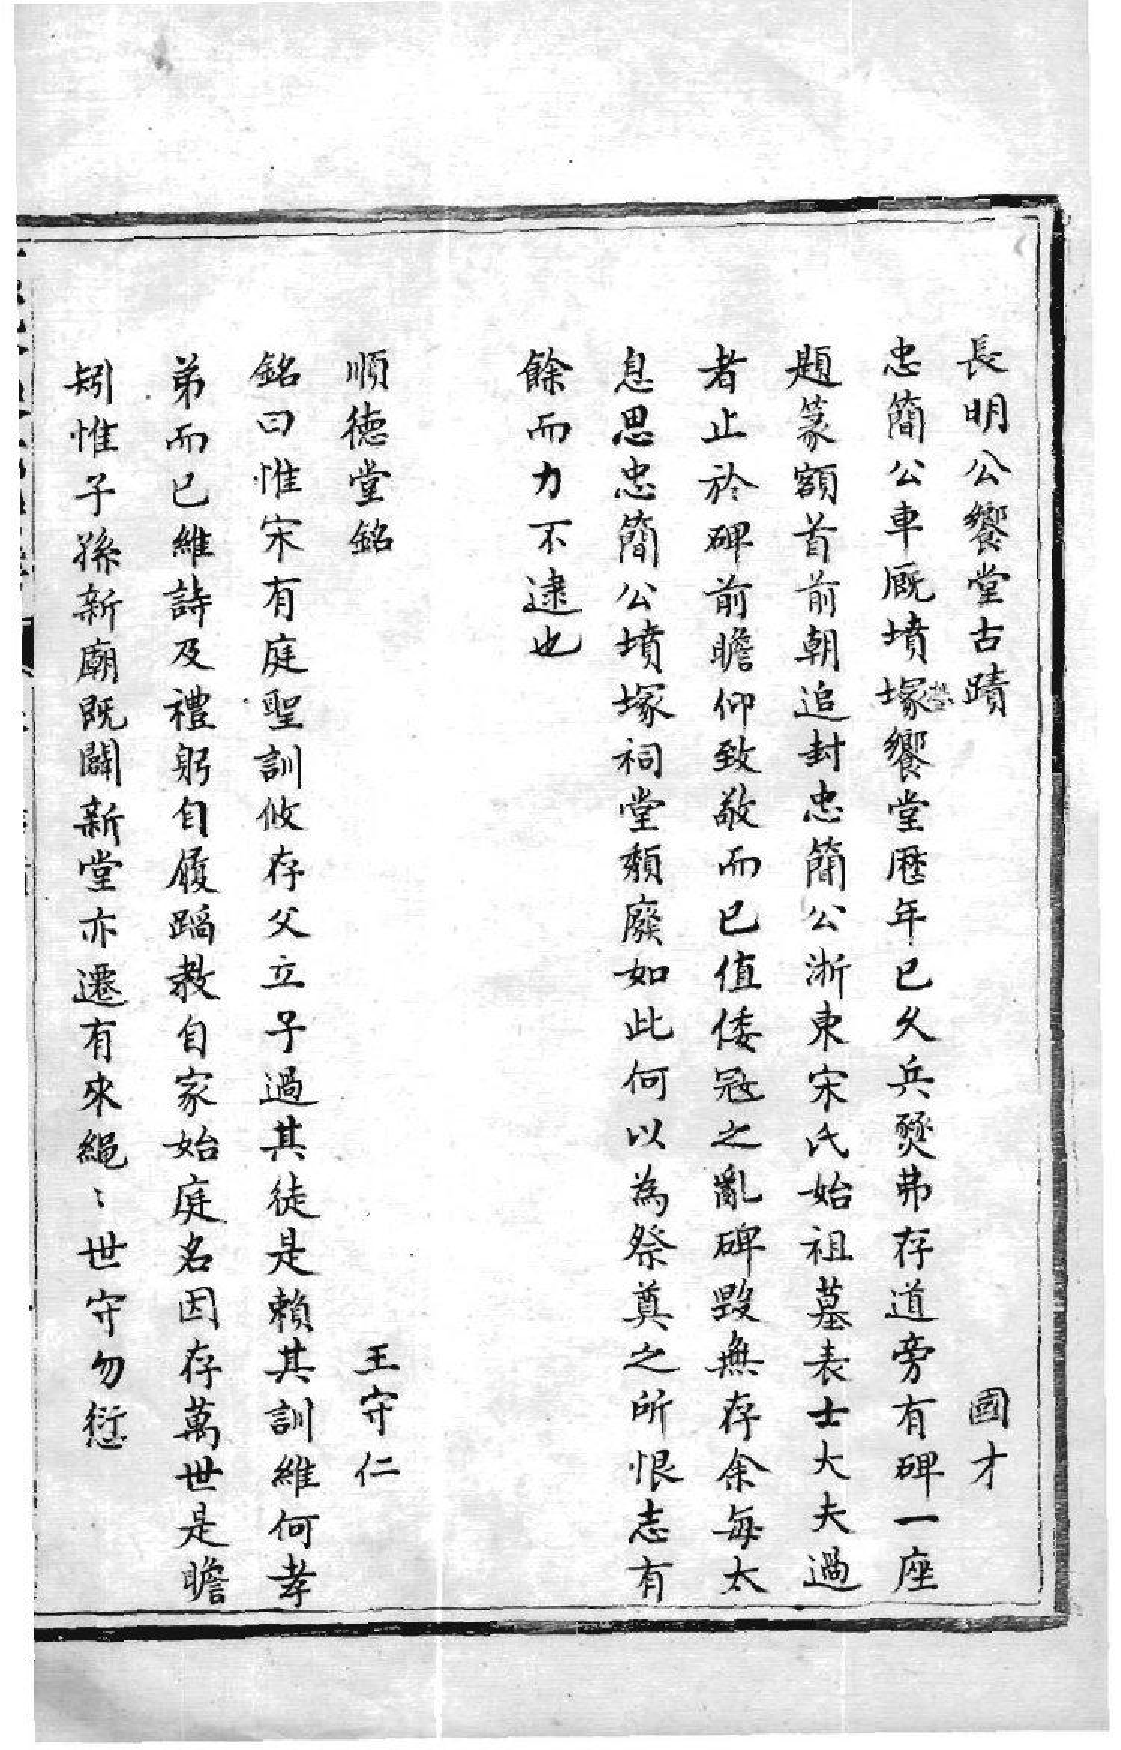 長明公饗堂古蹟　國才
忠簡公車厩墳塚饗堂歴年已久兵燹弗存道旁有碑一座
題篆額首前朝追封忠簡公浙東宋氏始祖墓表士大夫過
者止於碑前瞻仰致敬而已值倭冦之亂碑毀無存余每太
息思忠簡公墳塚祠堂頹廢如此何以為祭奠之所恨志有
餘而力不逮也
順德堂銘　王守仁
銘曰惟宋有庭聖訓攸存父立子過其徒是賴其訓維何孝
弟而已維詩及禮躬自履蹈教自家始庭名因存萬世是瞻
矧惟子孫新廟既闢新堂亦遷有來繩〻世守勿愆